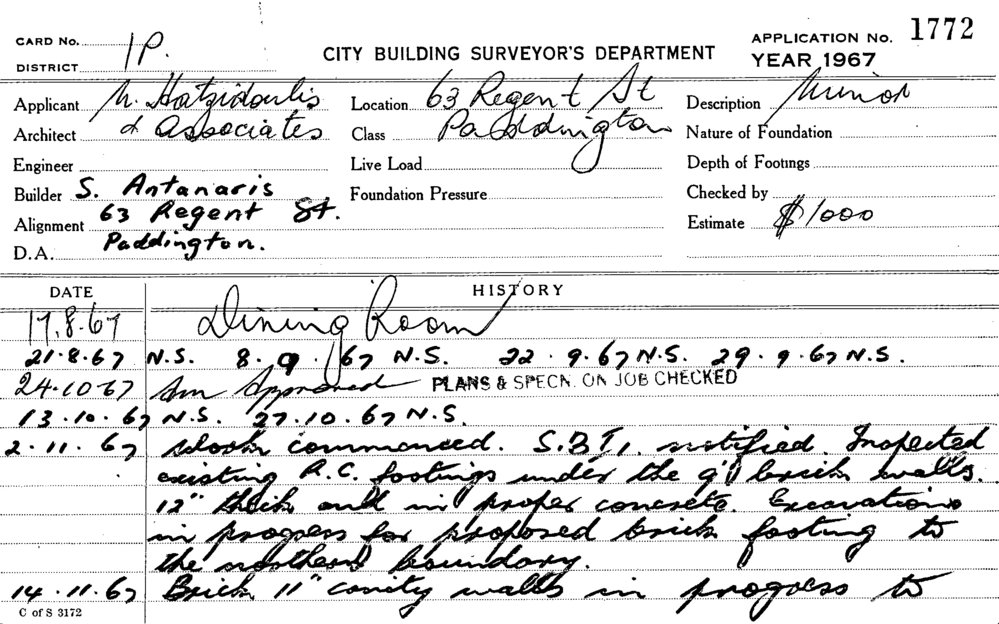 CARD No. 1P.
DISTRICT
CITY BUILDING SURVEYOR'S DEPARTMENT
APPLICATION No. 1772
YEAR 1967
Applicant N. Hatzidoulis
Architect & Associates
Engineer
Builder S. Antanaris
Alignment 63 Regent St.
D.A. Paddington.
Location 63 Regent St
Class Paddington
Live Load
Foundation Pressure
Description Minor
Nature of Foundation
Depth of Footings
Checked by
Estimate $1000
DATE HISTORY
17.8.67 Dining Room
21.8.67 N.S. 8.9.67 N.S. 22.9.67 N.S. 29.9.67 N.S.
24.10.67 Am Approved PLANS & SPECN. ON JOB CHECKED
13.10.67 N.S. 27.10.67 N.S.
2.11.67 Work commenced. S.B.I. notified. Inspected
existing R.C. footings under the 9" brick walls.
12" thick and in proper concrete. Excavations
in progress for proposed brick footing to
the northern boundary.
14.11.67 Brick 11" cavity walls in progress to
C of S 3172